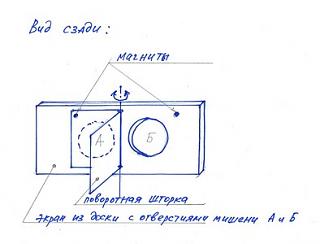 Вид сзади:
магниты
А
Б
поворотная шторка
экран из доски с отверстиями мишени А и Б